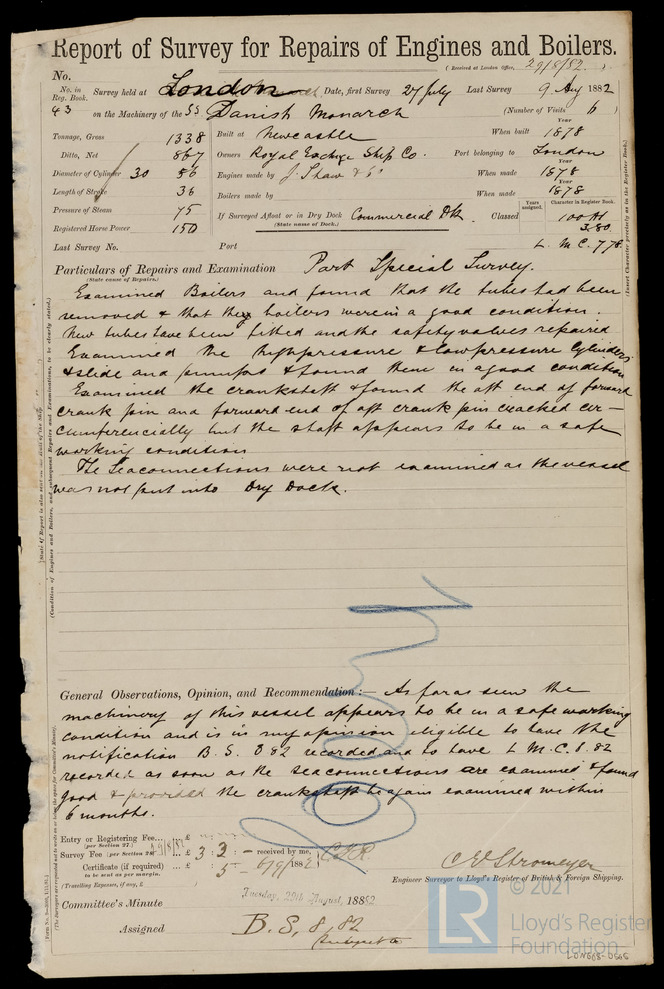 Report of Survey for Repairs of Engines and Boilers.
(Received at London Office, 29/8/82.)
No.
No. in Reg. Book. Survey held at London Date, first Survey 27 July Last Survey 9 Aug 1882
43 on the Machinery of the SS Danish Monarch (Number of Visits 6)
Tonnage, Gross 1338 Built at Newcastle When built Year 1878
Ditto, Net 867 Owners Royal Exchge Ship Co. Port belonging to London
Diameter of Cylinder 30 56 Engines made by J. Shaw & Co When made Year 1878
Length of Stroke 36 Boilers made by When made Year 1878
Pressure of Steam 75 If Surveyed Afloat or in Dry Dock Commercial Dk. Classed Years assigned. Character in Register Book. 100 A1
(State name of Dock.)
Registered Horse Power 150 3.80
Last Survey No. Port L. M C. 7 78
Particulars of Repairs and Examination Part Special Survey.
(State cause of Repairs.)
Examined Boilers and found that the tubes had been
removed & that they boilers were in a good condition.
New tubes have been fitted and the safety valves repaired
Examined the high pressure & low pressure cylinders
& slide and pumps & found them in a good condition
Examined the crankshaft & found the aft end of forward
crank pin and forward end of aft crank pin cracked cir-
cumferencially but the shaft appears to be in a safe
working condition
The Seaconnections were not examined as the vessel
was not put into Dry Dock.
General Observations, Opinion, and Recommendation:— As far as seen the
machinery of this vessel appears to be in a safe working
condition and is in my opinion eligible to have the
notification B. S. 8 82 recorded and to have L M. C. 8. 82
recorded as soon as the seaconnections are examined & found
good & provided the crankshaft be again examined within
6 months.
Entry or Registering Fee... £
(per Section 27.)
Survey Fee (per Section 28) ... £ 3 : 3 : — received by me,
Certificate (if required) ... £ : 5 — 6/9/1882
to be sent as per margin.
(Travelling Expenses, if any, £ )
C E Stromeyer
Engineer Surveyor to Lloyd's Register of British & Foreign Shipping.
Committee's Minute Tuesday, 29th August, 1882
Assigned B. S, 8, 82
Subject to
© 2021
LR Lloyd's Register
Foundation
LON668-0565